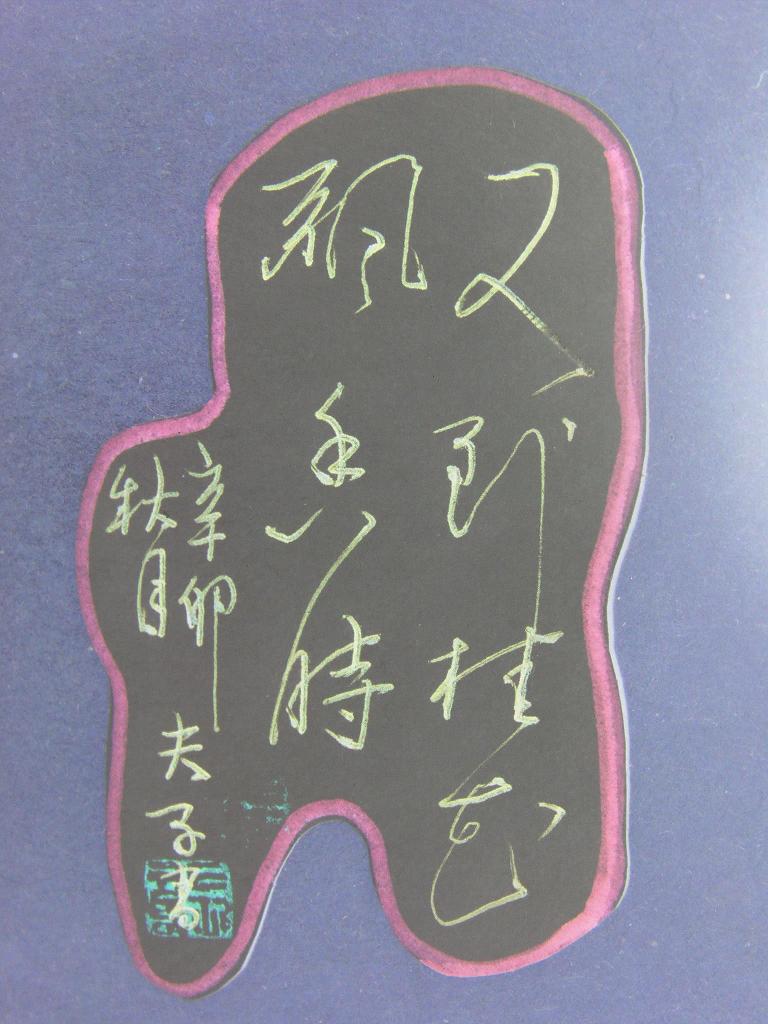 又到桂花
飘香时
辛卯
秋月
夫子书